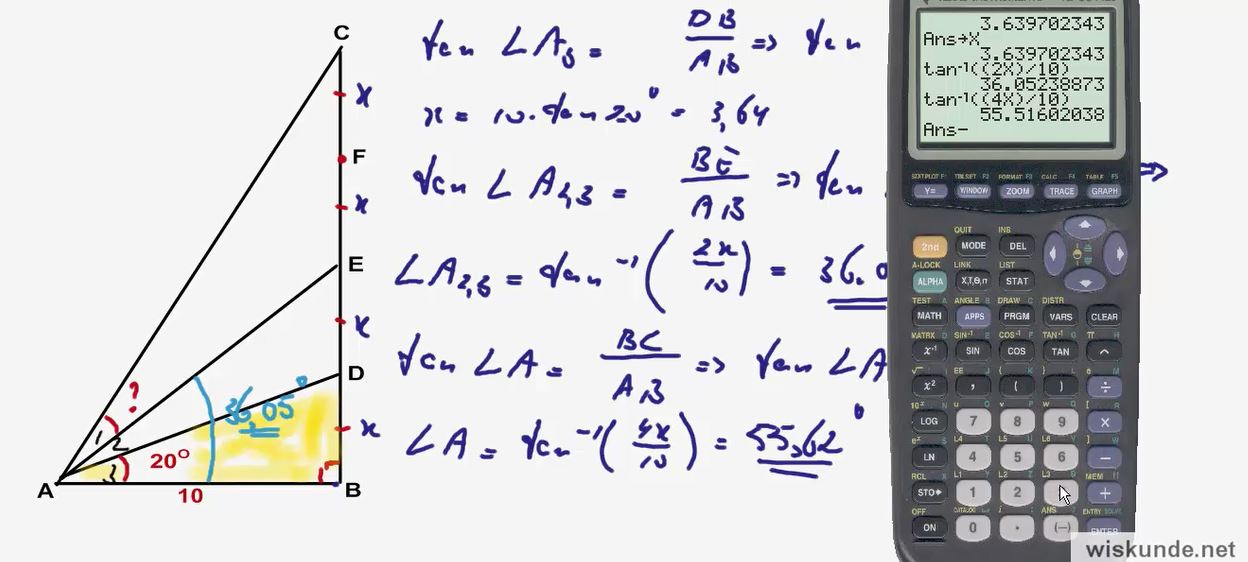 C
x
F
x
E
x
D
x
B
A
?
1
2
3
20°
36,05°
10
tan ∠A₃ = DB/AB => tan
x = 10·tan 20° = 3,64
tan ∠A₂,₃ = BE/AB => tan
=>
∠A₂,₃ = tan⁻¹(2x/10) = 36.0
tan ∠A = BC/AB => tan ∠A
∠A = tan⁻¹(4x/10) = 55,62°
3.639702343
Ans→X
3.639702343
tan⁻¹((2X)/10)
36.05238873
tan⁻¹((4X)/10)
55.51602038
Ans-
STAT PLOT F1 TBLSET F2 FORMAT F3 CALC F4 TABLE F5
Y= WINDOW ZOOM TRACE GRAPH
QUIT INS
2nd MODE DEL
A-LOCK LINK LIST
ALPHA X,T,Θ,n STAT
TEST A ANGLE B DRAW C DISTR
MATH APPS PRGM VARS CLEAR
MATRX D SIN⁻¹ E COS⁻¹ F TAN⁻¹ G π H
x⁻¹ SIN COS TAN ^
√ I EE J { K } L e M
x² , ( ) ÷
10ˣ N u O v P w Q [ R
LOG 7 8 9 ×
eˣ S L4 T L5 U L6 V ] W
LN 4 5 6 −
RCL X L1 Y L2 Z L3 θ MEM "
STO▸ 1 2 3 +
OFF CATALOG i ANS ENTRY SOLVE
ON 0 . (−) ENTER
wiskunde.net